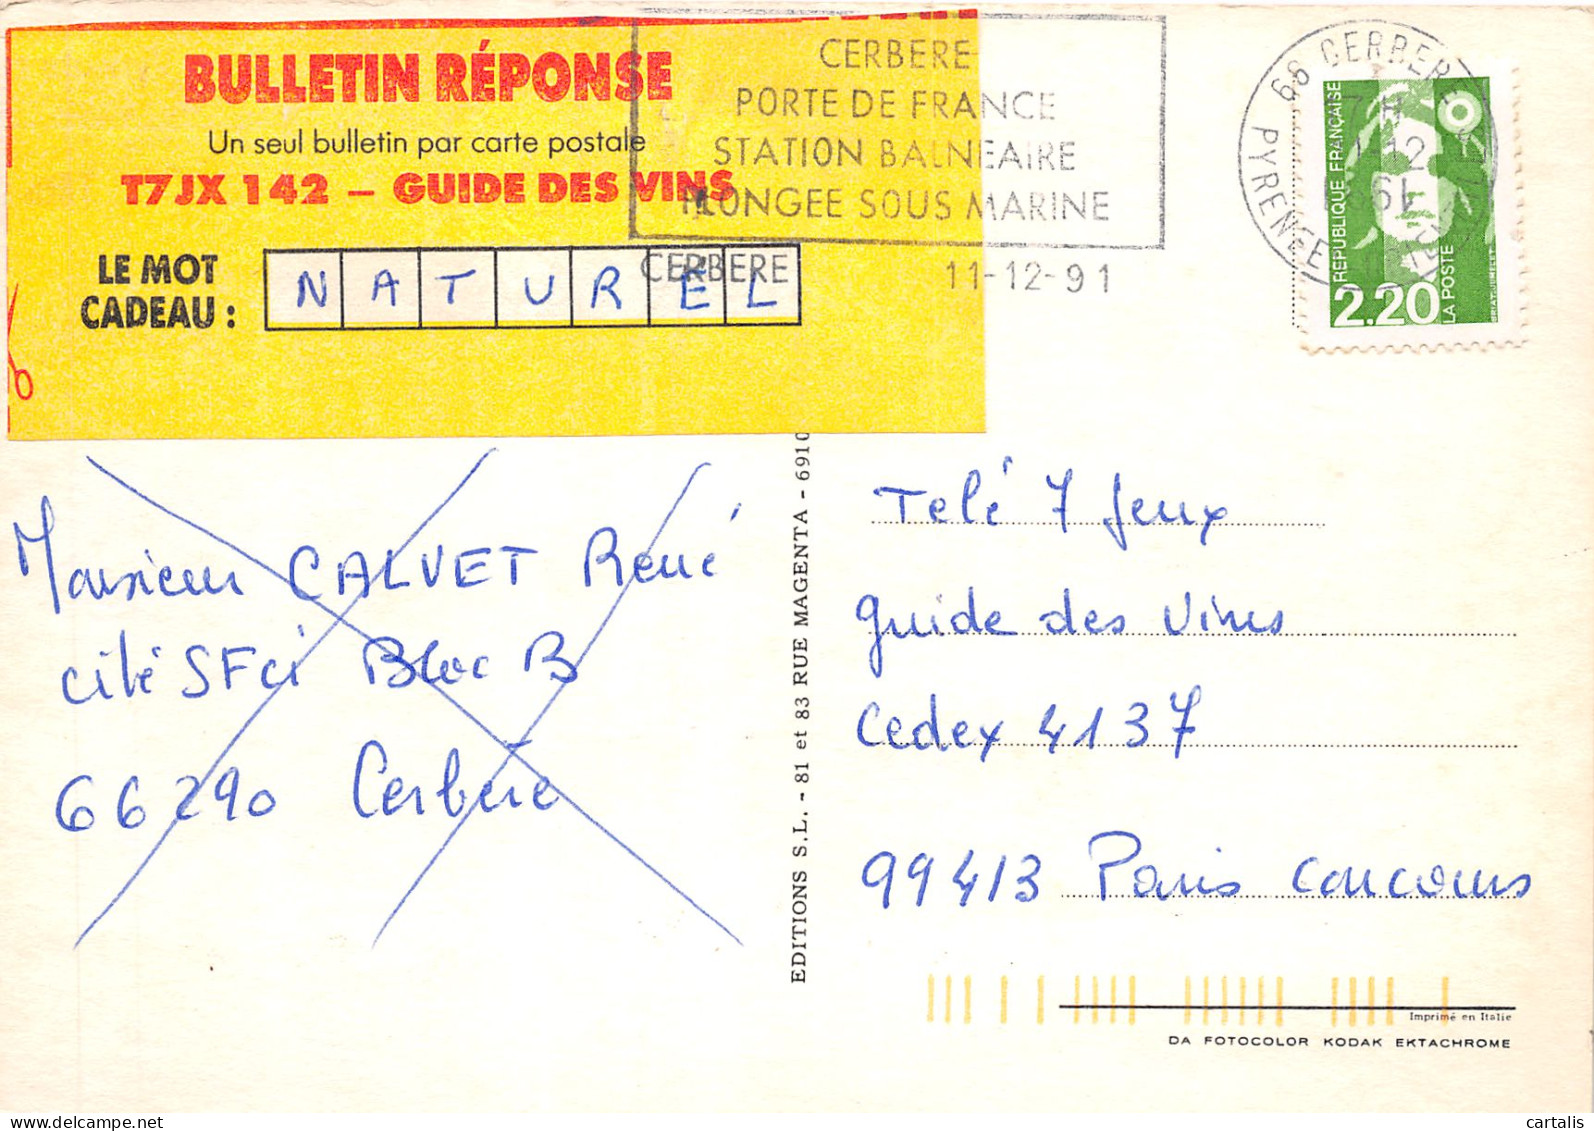 BULLETIN RÉPONSE
Un seul bulletin par carte postale
T7JX 142 – GUIDE DES VINS
LE MOT
CADEAU :
N A T U R E L
CERBERE
PORTE DE FRANCE
STATION BALNEAIRE
PLONGEE SOUS MARINE
CERBERE 11-12-91
66 CERBERE
12
1991
REPUBLIQUE FRANÇAISE
2.20
LA POSTE
BRIAT-JUMELET
Monsieur CALVET René
cité SFci Bloc B
66290 Cerbère
EDITIONS S.L. - 81 et 83 RUE MAGENTA - 6910
Telé 7 Jeux
guide des vins
Cedex 4137
99413 Paris concours
Imprimé en Italie
DA FOTOCOLOR KODAK EKTACHROME
www.delcampe.net
cartalis